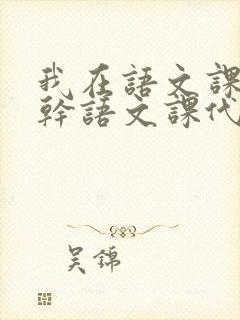 我在語文課
幹語文課代
吴錦